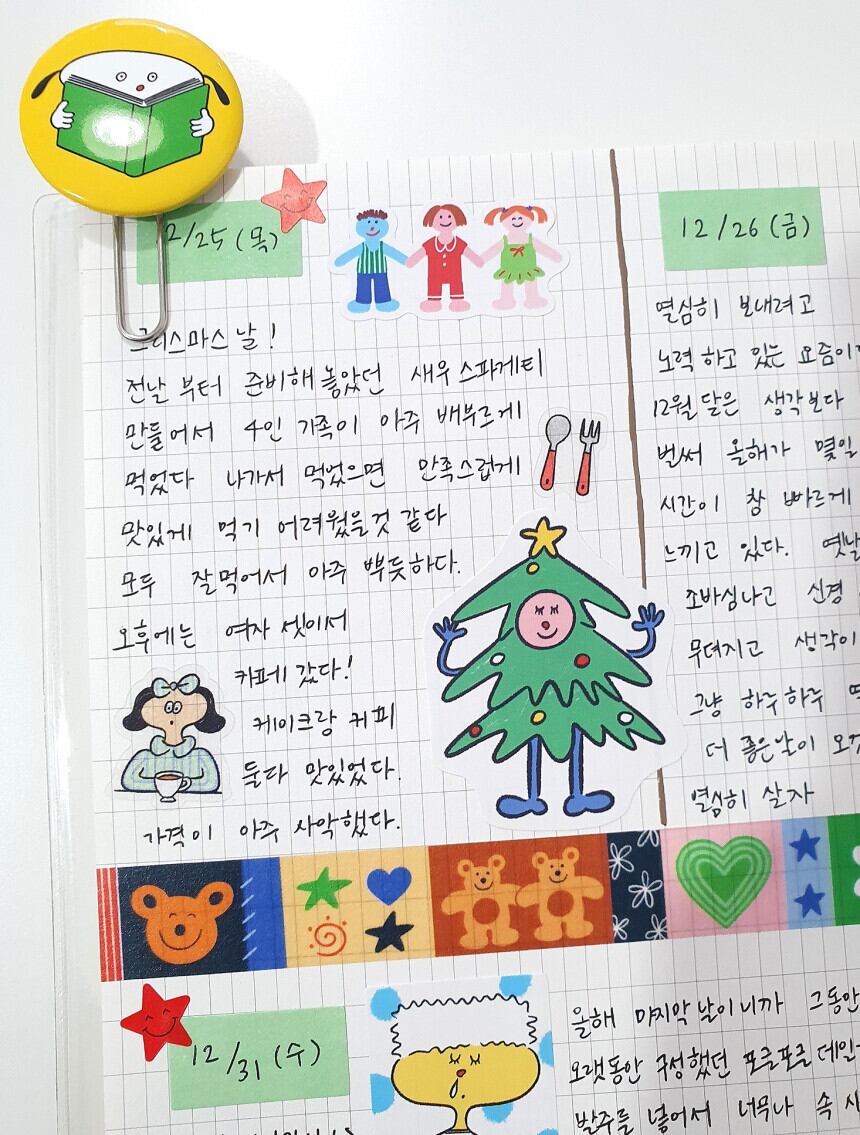 2/25 (목)
크리스마스 날!
전날 부터 준비해 놓았던 새우 스파게티
만들어서 4인 가족이 아주 배부르게
먹었다 나가서 먹었으면 만족스럽게
맛있게 먹기 어려웠을것 같다
모두 잘먹어서 아주 뿌듯하다.
오후에는 여자 셋이서
카페 갔다!
케이크랑 커피
둘다 맛있었다.
가격이 아주 사악했다.
12/26 (금)
열심히 보내려고
노력 하고 있는 요즘이
12월 달은 생각보다
벌써 올해가 몇일
시간이 참 빠르게
느끼고 있다. 옛날
조바심나고 신경
무뎌지고 생각이
그냥 하루하루
더 좋은날이 오
열심히 살자
12/31 (수)
올해 마지막 날이니까 그동안
오랫동안 구성했던 포클포클 데인
발주를 넣어서 너무나 속